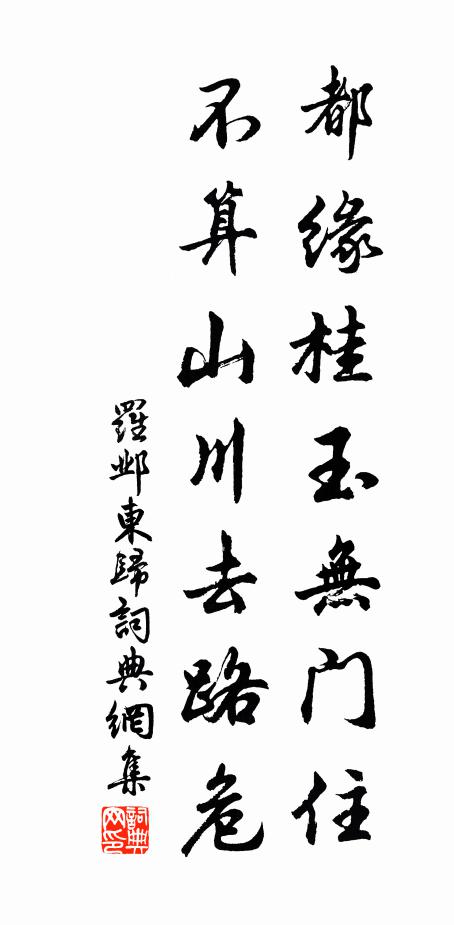 都緣桂玉無門住
不算山川去路危
羅鄴東歸詞典網集
詞典网印